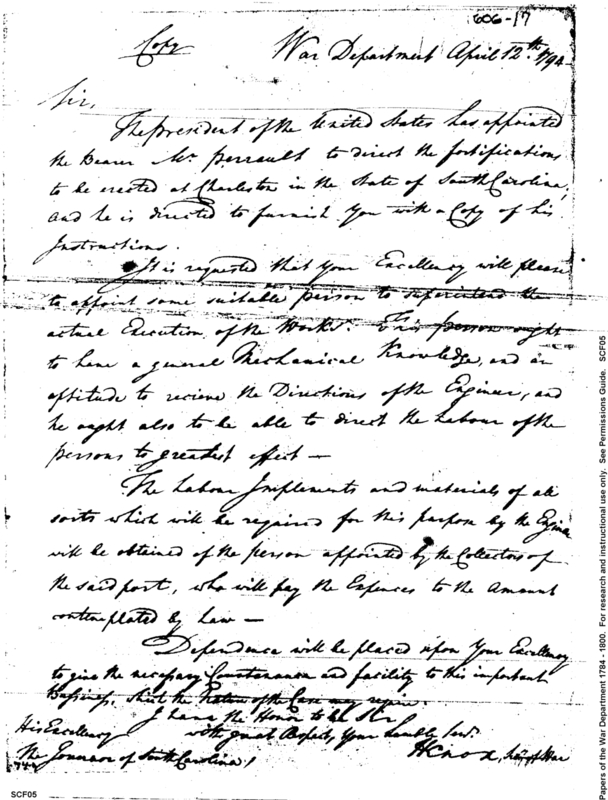 606-17
Copy
War Department April 12th 1794
Sir,
The President of the United States has appointed
the Bearer Mr. Perrault to direct the fortifications
to be erected at Charleston in the State of South Carolina,
and he is directed to furnish you with a Copy of his
Instructions.
It is requested that your Excellency will please
to appoint some suitable person to superintend the
actual Execution of the Works. This person ought
to have a general Mechanical Knowledge, and an
aptitude to recieve the Directions of the Engineer, and
he ought also to be able to direct the Labour of the
persons to greatest effect —
The Labour Implements and materials of all
sorts which will be required for this purpose by the Engineer
will be obtained of the person appointed by the Collectors of
the said port, who will pay the Expences to the Amount
contemplated by Law —
Dependence will be placed upon Your Excellency
to give the necessary Countenance and facility to this important
Bussiness, that the Nature of the Case may require.
I have the Honor to be Sir
with great Respect, Your humble Servt.
His Excellency
HKnox, Secy of War
The Governor of South Carolina
SCF05
Papers of the War Department 1784 - 1800. For research and instructional use only. See Permissions Guide. SCF05